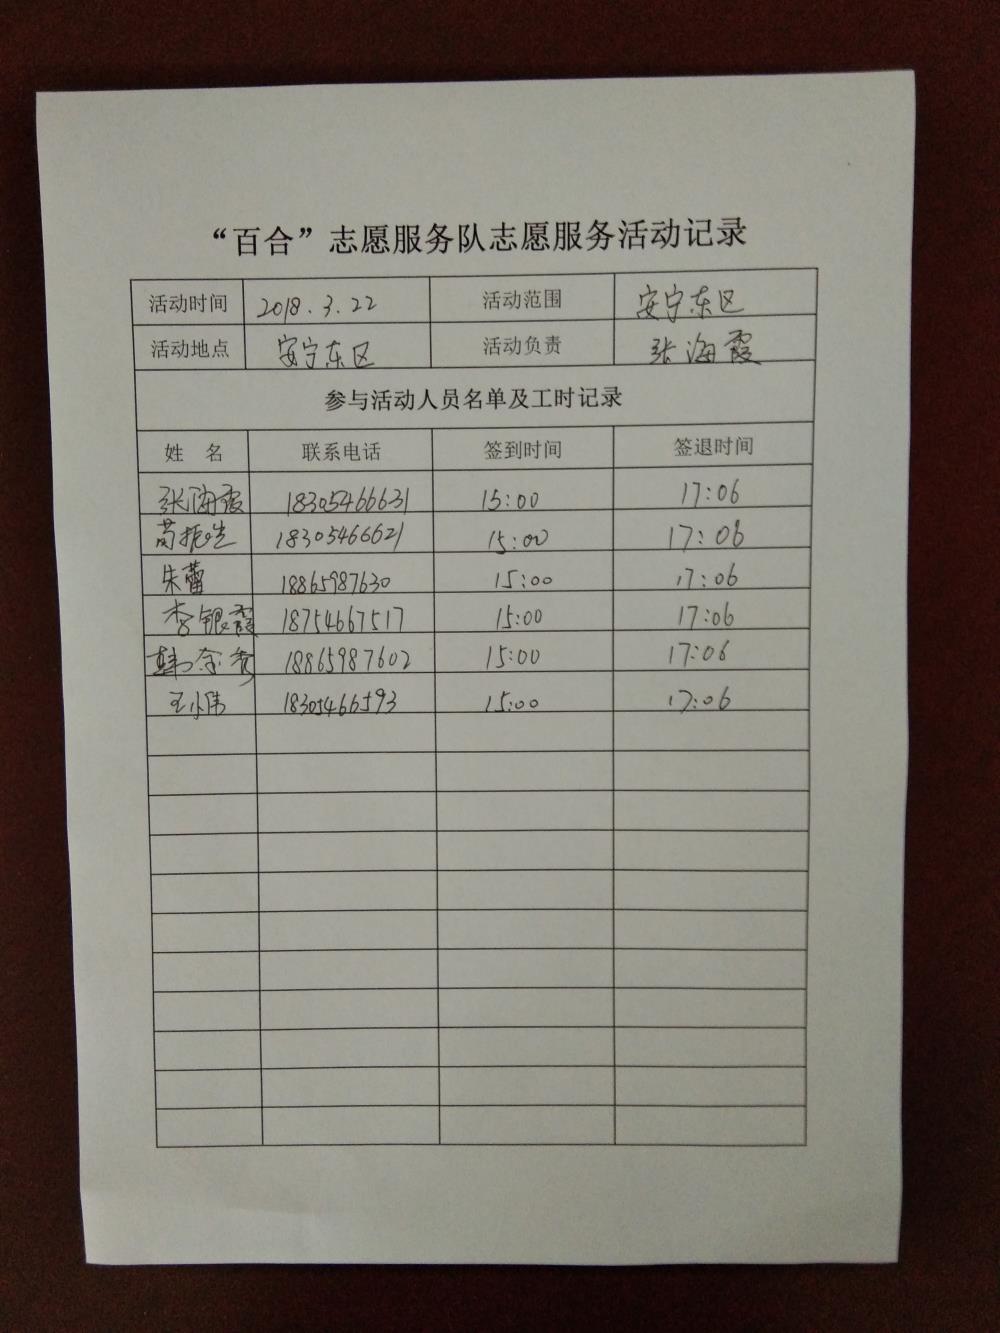 “百合”志愿服务队志愿服务活动记录
活动时间 2018.3.22 活动范围 安宁东区
活动地点 安宁东区 活动负责 张海霞
参与活动人员名单及工时记录
姓 名 联系电话 签到时间 签退时间
张海霞 18305466631 15:00 17:06
18305466621 15:00 17:06
朱蕾 18865987630 15:00 17:06
李银霞 18754667517 15:00 17:06
韩 秀 18865987602 15:00 17:06
王小伟 18305466593 15:00 17:06